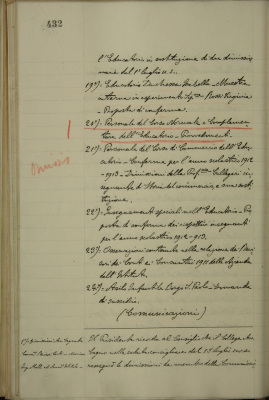 432
l'Educatorio in sostituzione di
maria del 1° luglio u.s.
19°/. Educatorio Duchessa Isabella - Maestra
interna in esperimento Sig.na Bosso Virginia
- Proposta di conferma.
20°/. Personale del Corso Normale e Complemen-
tare dell'Educatorio - Provvedimenti.
21°/. Personale del Corso di Commercio dell'Edu-
catorio - Conferma per l'anno scolastico 1912
-1913 - Dimissioni della Prof.ssa Callegari in-
segnante di Storia del commercio e sua sosti-
tuzione.
22°/. Insegnamenti speciali nell'Educatorio - Pro-
posta di conferma dei rispettivi insegnanti
per l'anno scolastico 1912-913.
23°/. Osservazioni contenute nella relazione dei Revi-
sori dei Conti al Consuntivo 1911 della Azienda
dell'Istituto.
24°/. Asilo Infantile Borgo S. Paolo - Domanda
di sussidio.
(Comunicazioni)
Il Presidente ricorda al Consiglio che il Collega Av.
nella seduta consigliare del 1° luglio
le dimissioni da membro della Commissione